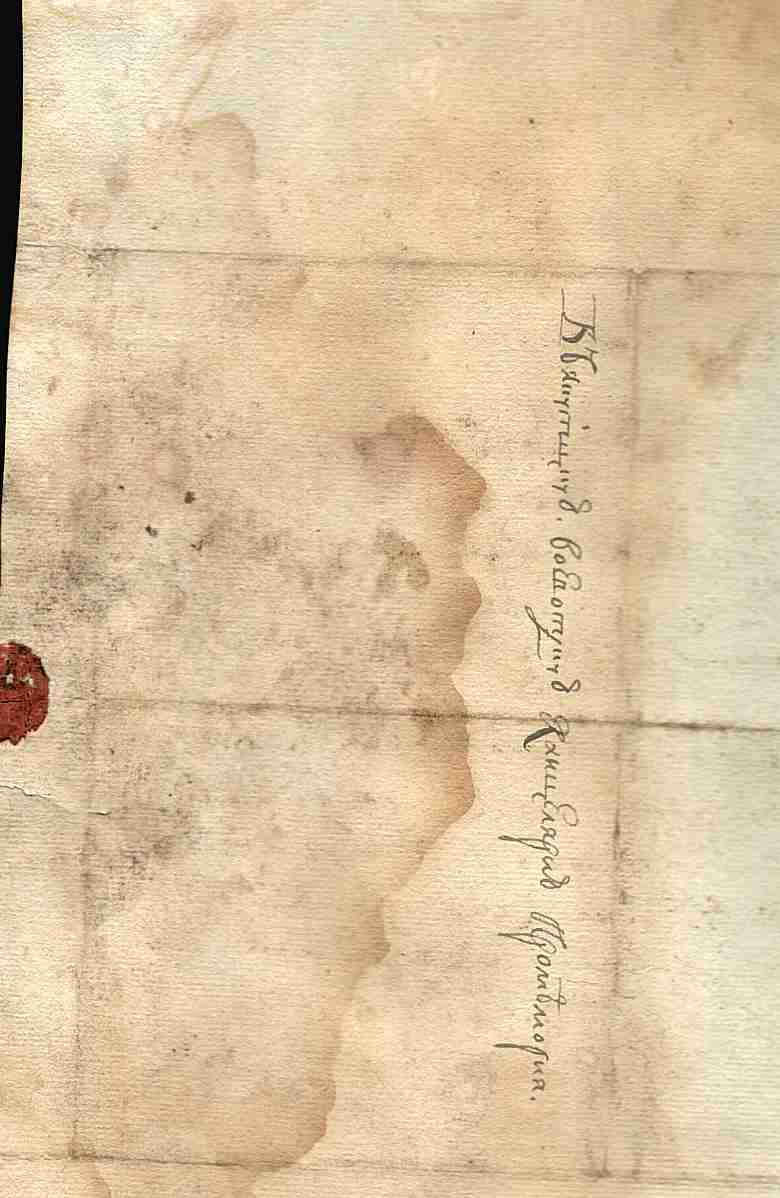 Въ якутцкую. воеводскую Канцелярию Промемория.